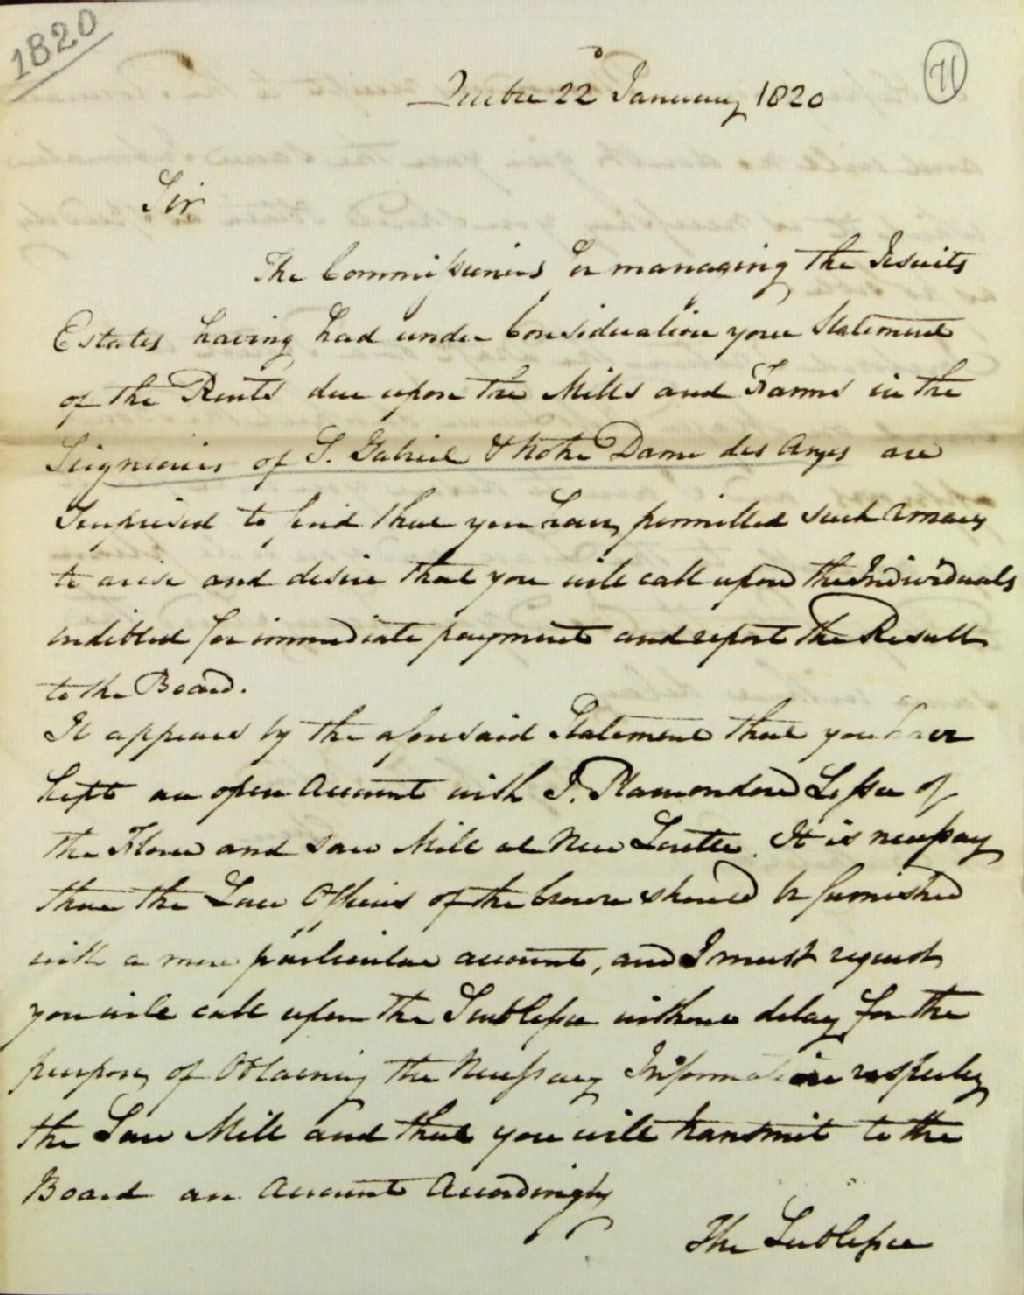 1820
71
Quebec 22d January 1820
Sir
The Commissioners for managing the Jesuits
Estates having had under Consideration your Statement
of the Rents due upon the Mills and Farms in the
Seigniories of S. Gabriel & Notre Dame des Anges are
Surprised to find that you have permitted such arrears
to arise and desire that you will call upon the Individuals
indebted for immediate payment and report the Result
to the Board.
It appears by the aforesaid Statement that you have
kept an open Account with J. Plamondon Lessee of
the Flour and Saw Mill at New Lorette. It is necessary
that the Law Officers of the Crown should be furnished
with a more particular account, and I must request
you will call upon the Sublessee without delay for the
purpose of Obtaining the Necessary Information respecting
the Saw Mill and that you will transmit to the
Board an Account Accordingly
The Sublessee